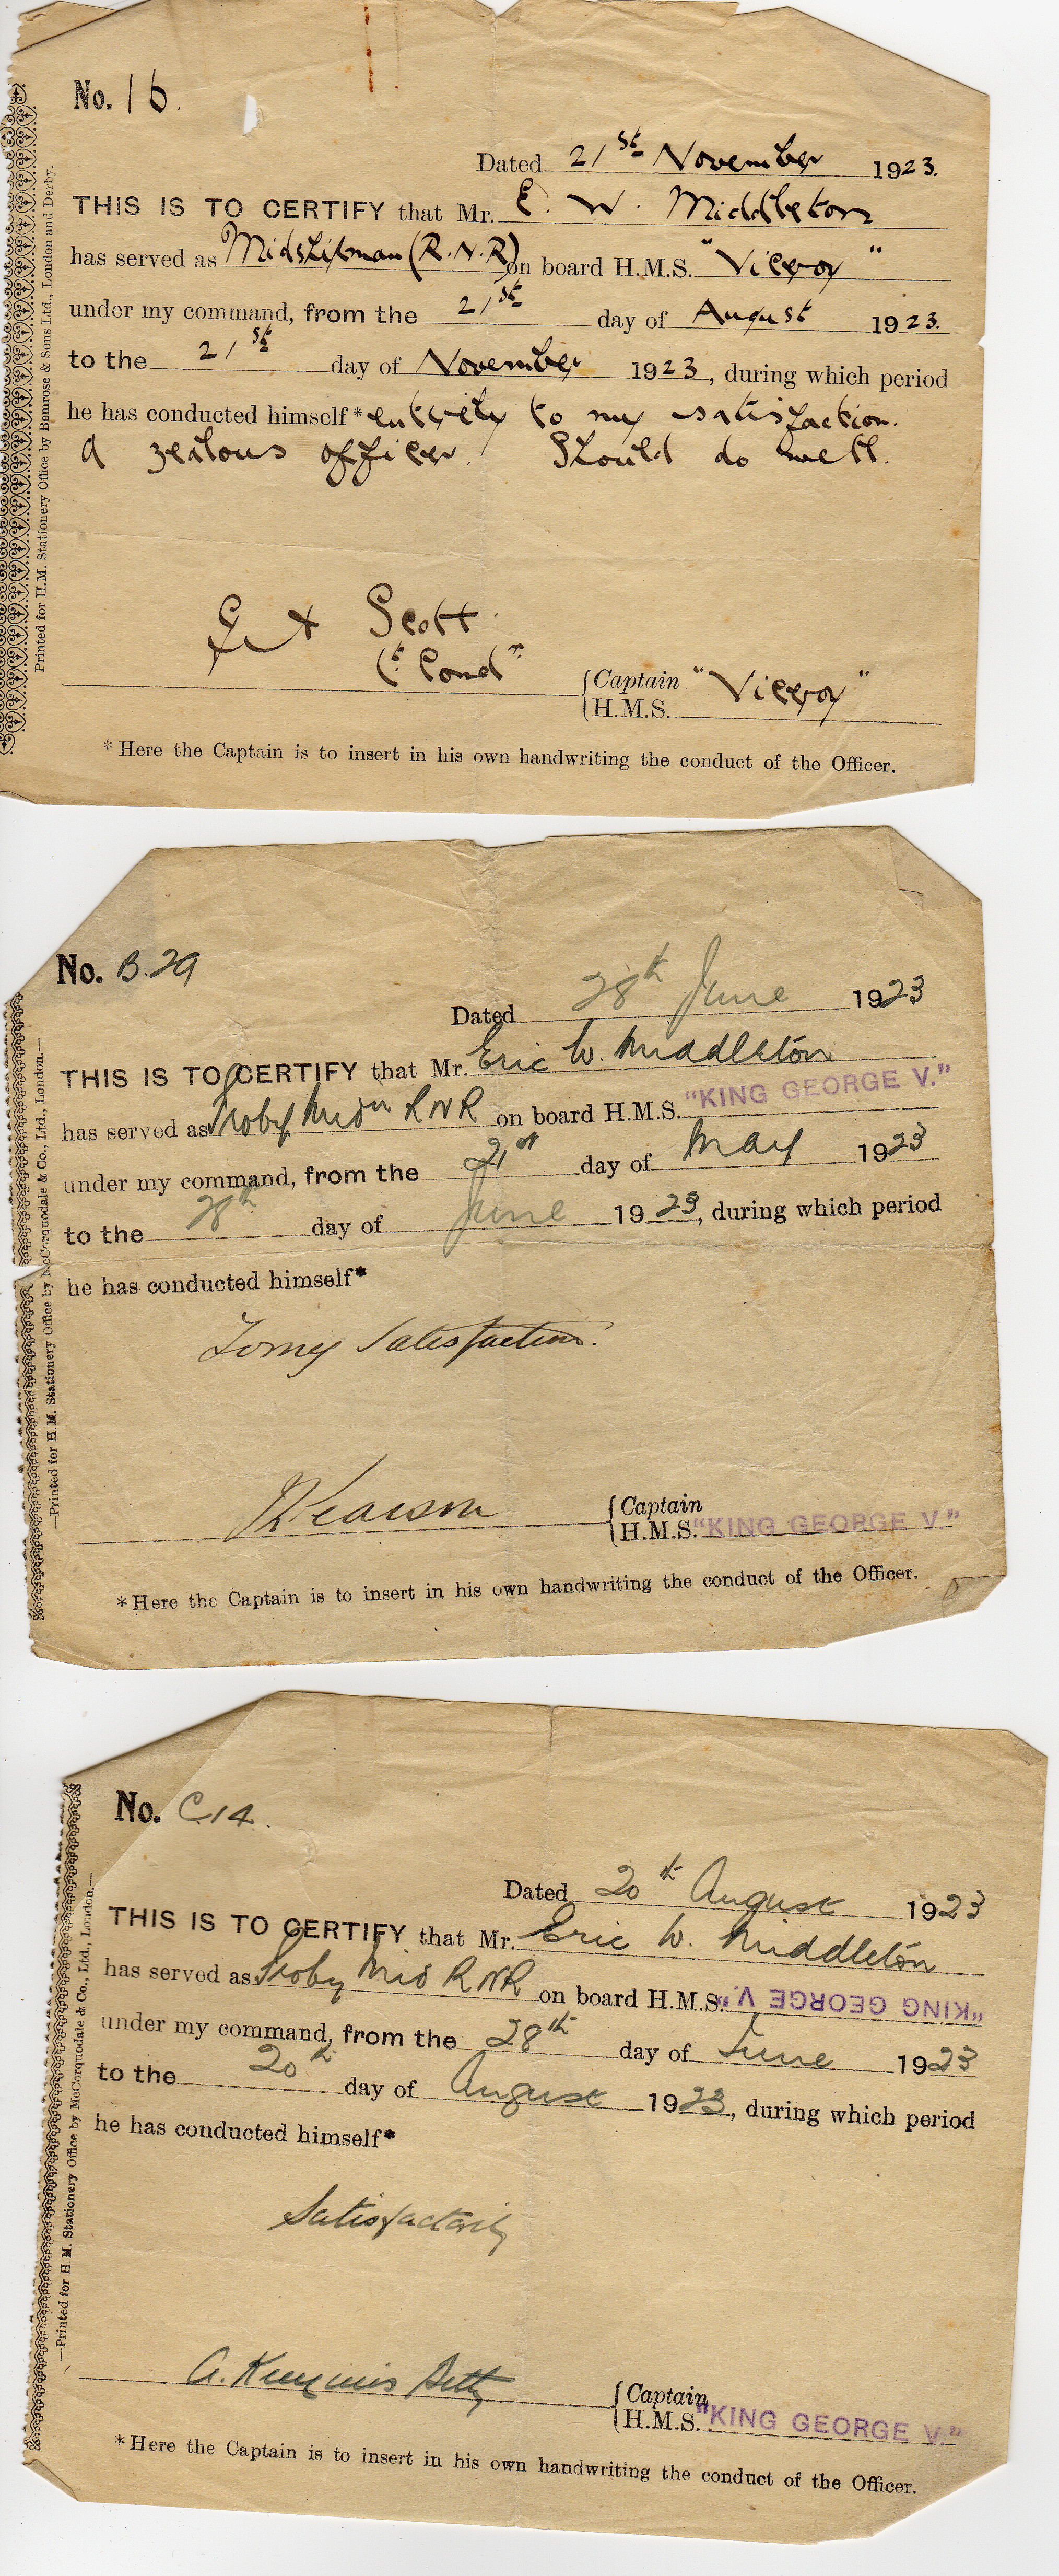 No. 16.
Dated 21st November 1923.
THIS IS TO CERTIFY that Mr. E. W. Middleton
has served as Midshipman (R.N.R) on board H.M.S. "Viceroy"
under my command, from the 21st day of August 1923.
to the 21st day of November 1923, during which period
he has conducted himself* entirely to my satisfaction.
A zealous officer. Should do well.
Scott
Lt Comdr
Captain "Viceroy"
H.M.S.
*Here the Captain is to insert in his own handwriting the conduct of the Officer.
Printed for H.M. Stationery Office by Bemrose & Sons Ltd., London and Derby.
No. B.29
Dated 28th June 1923
THIS IS TO CERTIFY that Mr. Eric W. Middleton
has served as Proby Midn RNR on board H.M.S. "KING GEORGE V."
under my command, from the 21st day of May 1923
to the 28th day of June 1923, during which period
he has conducted himself*
To my satisfaction.
Captain
H.M.S. "KING GEORGE V."
*Here the Captain is to insert in his own handwriting the conduct of the Officer.
—Printed for H.M. Stationery Office by McCorquodale & Co., Ltd., London.—
No. C.14.
Dated 20th August 1923
THIS IS TO CERTIFY that Mr. Eric W. Middleton
has served as Proby Mid RNR on board H.M.S. "KING GEORGE V."
under my command, from the 28th day of June 1923
to the 20th day of August 1923, during which period
he has conducted himself*
Satisfactorily
A. Betty
Captain
H.M.S. "KING GEORGE V."
*Here the Captain is to insert in his own handwriting the conduct of the Officer.
—Printed for H.M. Stationery Office by McCorquodale & Co., Ltd., London.—